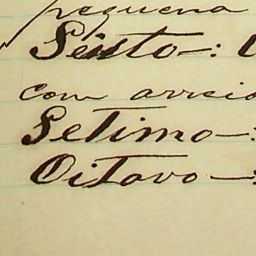 pequena
Seisto—:
com arreio
Setimo—:
Oitavo—: